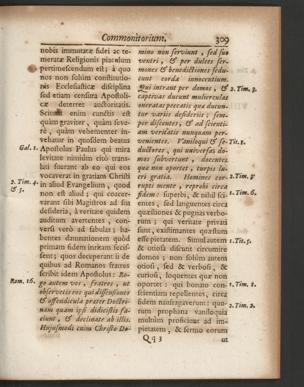 Commonitorium. 309
nobis immutatæ fidei ac te-
meratæ Religionis piaculum
pertimescendum est; à quo
nos non solùm constitutio-
nis Ecclesiasticæ disciplina
sed etiam censura Apostoli-
cæ deterret auctoritatis.
Scimus enim cuncti est
quàm graviter, quàm seve-
rè, quàm vehementer in-
vehatur in quosdam beatus
Gal. 1. Apostolus Paulus qui mira
levitate nimiùm citò trans-
lati fuerant ab eo qui eos
vocaverat in gratiam Christi
in aliud Evangelium, quod
2. Tim. 4.
& 3. non est aliud; qui coacer-
varant sibi Magistros ad sua
desideria, à veritate quidem
auditum avertentes, con-
versi verò ad fabulas; ha-
bentes damnationem quòd
primam fidem irritam fecis-
sent; quos deceperant ii de
quibus ad Romanos fratres
scribit idem Apostolus: Ro-
Rom. 16. go autem vos, fratres, ut
observetis eos qui dissensiones
& offendicula præter Doctri-
nam quam ipsi didicistis fa-
ciunt, & declinate ab illis.
Hujusmodi enim Christo Do-
mino non serviunt, sed suo
ventri, & per dulces ser-
mones & benedictiones sedu-
cunt corda innocentium.
Qui intrant per domos, & 2. Tim. 3.
captivas ducunt mulierculas
oneratas peccatis quæ ducun-
tur variis desideriis: sem-
per discentes, & ad scienti-
am veritatis nunquam per-
venientes. Vaniloqui & se- Tit. 1.
ductores, qui universas do-
mos subvertunt, docentes
quæ non oportet, turpis lu-
cri gratiâ. Homines cor- 2. Tim. 3.
rupti mente, reprobi circa
fidem: superbi, & nihil sci- 1. Tim. 6.
entes, sed languentes circa
quæstiones & pugnas verbo-
rum; qui veritate privati
sunt, existimantes quæstum
esse pietatem. Simul autem 1. Tit. 5.
& otiosi discunt circumire
domos; non solùm autem
otiosi, sed & verbosi, &
curiosi, loquentes quæ non
oportet: qui bonam con- 1. Tim. 1.
scientiam repellentes, circa
fidem naufragaverunt: quo- 2. Tim. 2.
rum prophana vaniloquia
multùm proficiunt ad im-
pietatem, & sermo eorum
Qq 3 ut